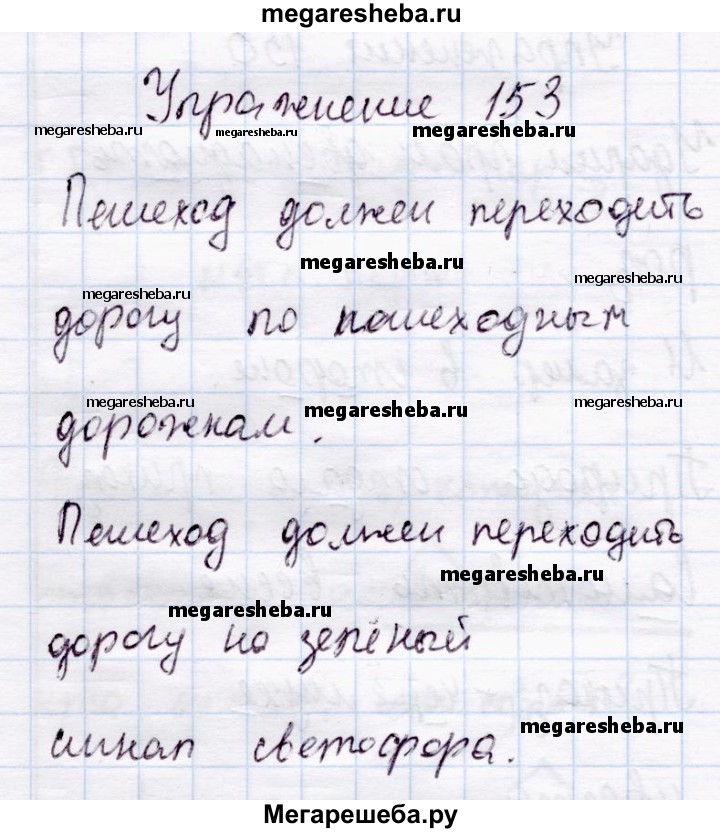 megaresheba.ru
Упражнение 153
megaresheba.ru megaresheba.ru megaresheba.ru
Пешеход должен переходить
megaresheba.ru
megaresheba.ru
megaresheba.ru
дорогу по пешеходным
megaresheba.ru megaresheba.ru megaresheba.ru
дорожкам.
Пешеход должен переходить
megaresheba.ru
megaresheba.ru
дорогу на зелёный
megaresheba.ru
сигнал светофора.
Мегарешеба.ру